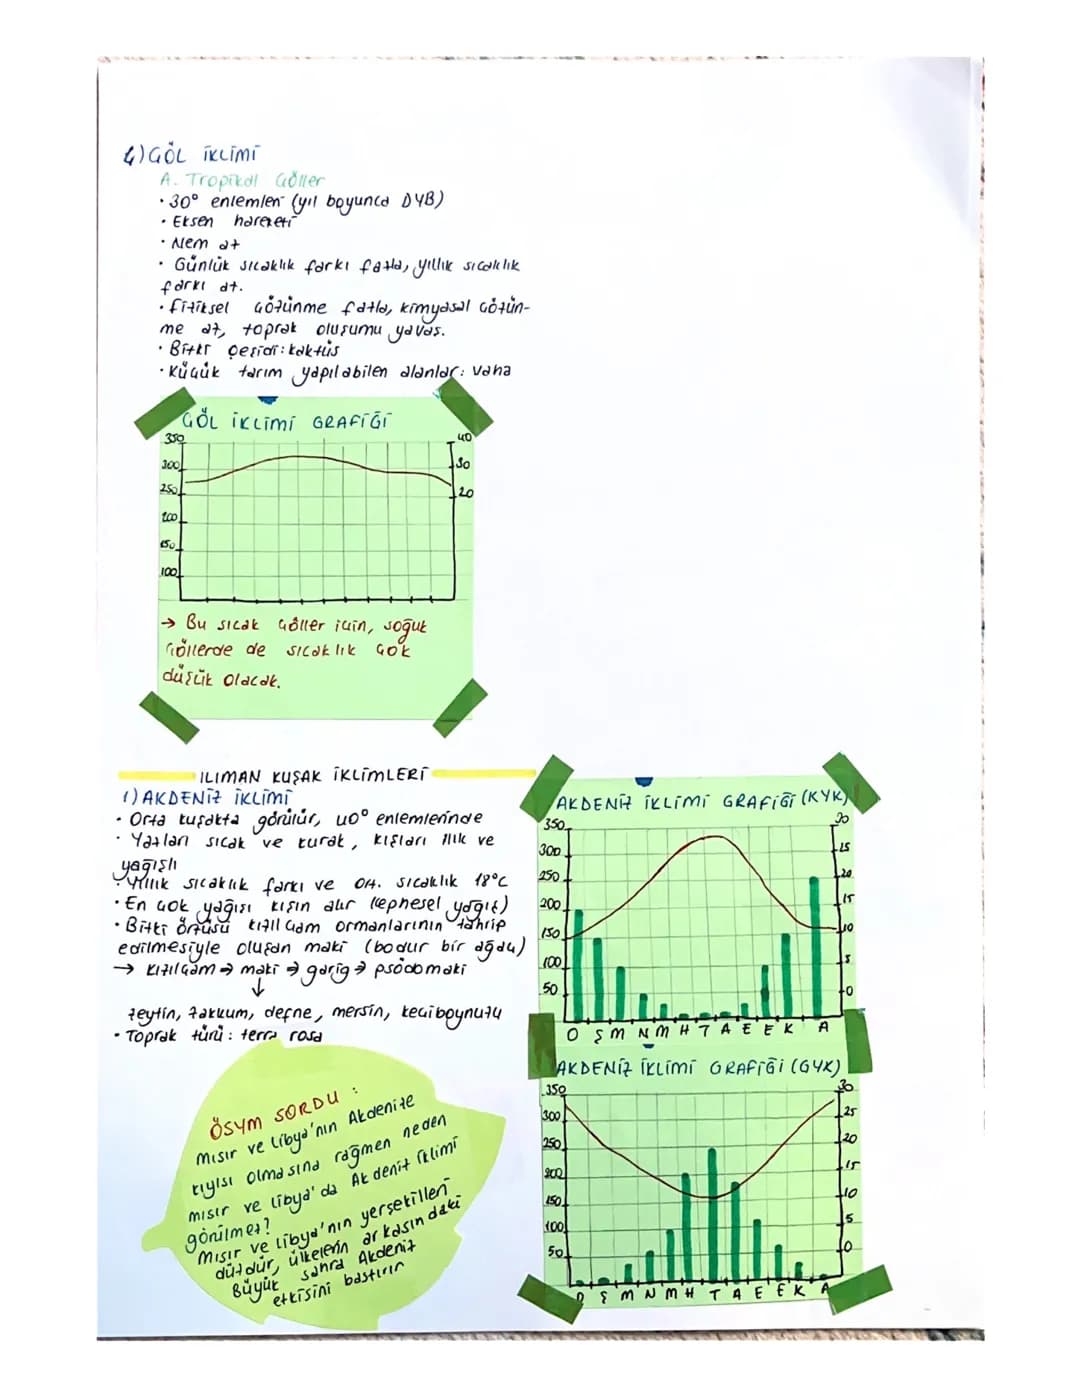 4) GÖL İKLİMİ
A. Tropikal Göller
· 30° enlemleri (yıl boyunca DYB)
· Eksen hareketi
· Nem az
· Günlük sıcaklık farkı fazla, yıllık sıcaklık
farkı az.
· Fiziksel çözünme fazla, kimyasal çözün-
me az, toprak oluşumu yavaş.
· Bitki çeşidi: kaktüs
· Küçük tarım yapılabilen alanlar: vaha
ÇÖL İKLİMİ GRAFİĞİ
350
300
250
200
150
100
40
30
20
→ Bu sıcak çöller için, soğuk
çöllerde de sıcaklık çok
düşük olacak.
ILIMAN KUŞAK İKLİMLERİ
1) AKDENİZ İKLİMİ
· Orta kuşakta görülür, 40° enlemlerinde
· Yazları sıcak ve kurak, kışları ılık ve
yağışlı
· Yıllık sıcaklık farkı ve ort. sıcaklık 18°C
· En çok yağışı kışın alır (cephesel yağış)
· Bitki örtüsü kızılçam ormanlarının tahrip
edilmesiyle oluşan maki (bodur bir ağaç)
→ kızılçam → maki → garig → psödomaki
↓
zeytin, zakkum, defne, mersin, keçiboynuzu
· Toprak türü: terra rosa
ÖSYM SORDU:
Mısır ve Libya'nın Akdenize
kıyısı olmasına rağmen neden
Mısır ve Libya'da Akdeniz iklimi
görülmez?
Mısır ve Libya'nın yerşekilleri
düzdür, ülkelerin arkasındaki
Büyük Sahra Akdeniz
etkisini bastırır
AKDENİZ İKLİMİ GRAFİĞİ (KYK)
350
300
250
200
150
100
50
30
25
20
15
10
5
0
O Ş M N M H T A E E K A
AKDENİZ İKLİMİ GRAFİĞİ (GYK)
350
300
250
200
150
100
50
30
25
20
15
10
5
0
O Ş M N M H T A E E K A